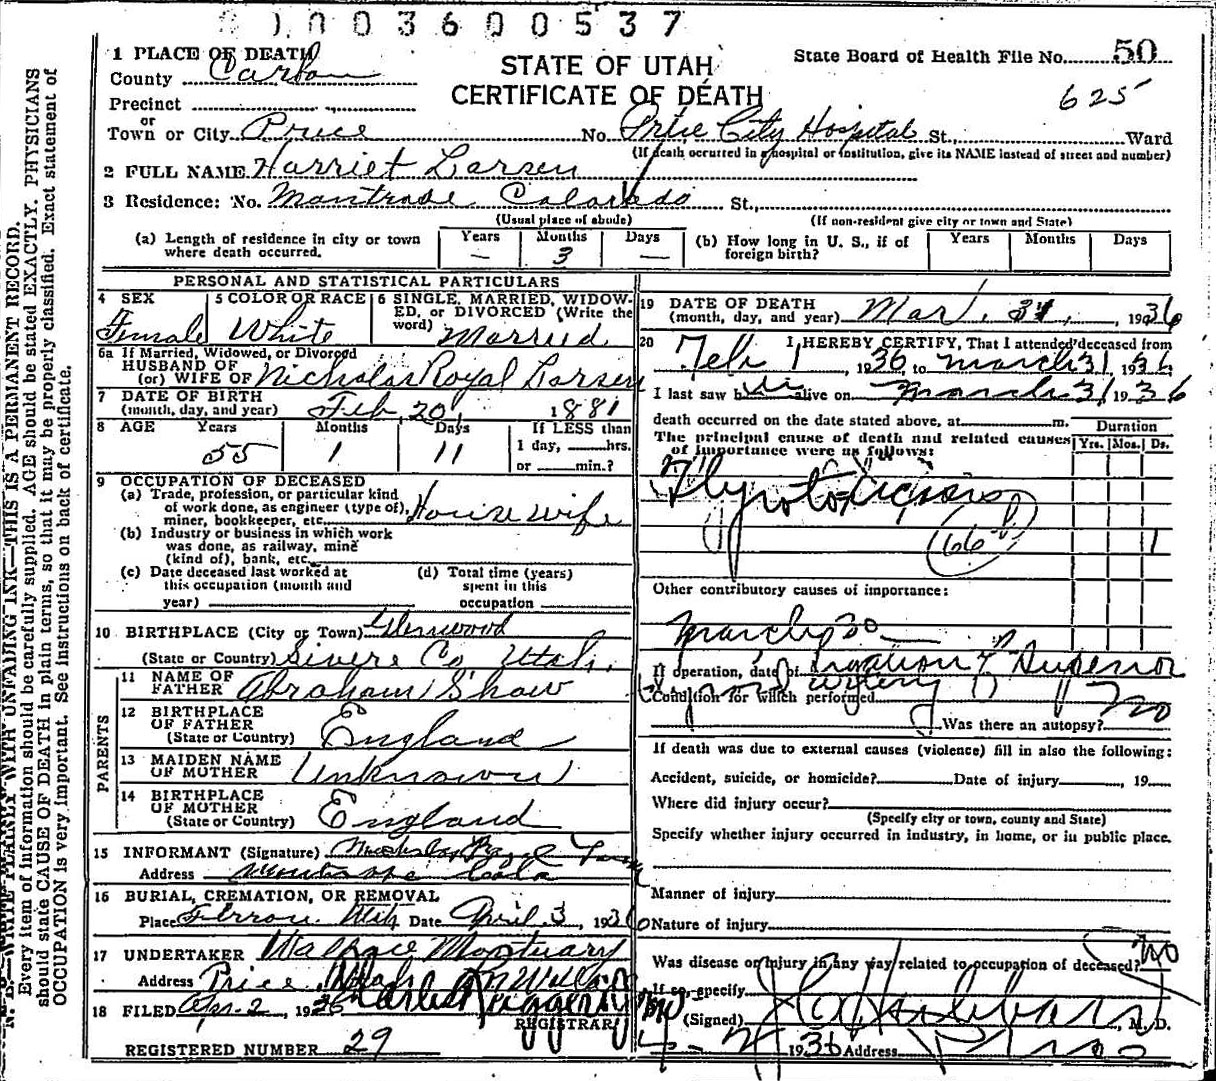 003600537
1 PLACE OF DEATH
County Carbon
STATE OF UTAH
CERTIFICATE OF DEATH
State Board of Health File No. 50
625
Precinct
or
Town or City Price No. Price City Hospital St., Ward
(If death occurred in a hospital or institution, give its NAME instead of street and number)
2 FULL NAME Harriet Larsen
3 Residence: No. Montrose Colorado St.,
(Usual place of abode) (If non-resident give city or town and State)
(a) Length of residence in city or town where death occurred. Years — Months 3 Days —
(b) How long in U. S., if of foreign birth? Years Months Days
PERSONAL AND STATISTICAL PARTICULARS
4 SEX Female
5 COLOR OR RACE White
6 SINGLE, MARRIED, WIDOWED, or DIVORCED (Write the word) Married
6a If Married, Widowed, or Divorced
HUSBAND OF
(or) WIFE OF Nicholas Royal Larsen
7 DATE OF BIRTH
(month, day, and year) Feb 20, 1881
8 AGE Years 55 Months 1 Days 11 If LESS than 1 day, hrs. or min.?
9 OCCUPATION OF DECEASED
(a) Trade, profession, or particular kind
of work done, as engineer (type of),
miner, bookkeeper, etc. Housewife
(b) Industry or business in which work
was done, as railway, mine
(kind of), bank, etc.
(c) Date deceased last worked at
this occupation (month and
year)
(d) Total time (years)
spent in this
occupation
10 BIRTHPLACE (City or Town) Glenwood
(State or Country) Sivere Co Utah.
PARENTS
11 NAME OF
FATHER Abraham Shaw
12 BIRTHPLACE
OF FATHER
(State or Country) England
13 MAIDEN NAME
OF MOTHER Unknown
14 BIRTHPLACE
OF MOTHER
(State or Country) England
15 INFORMANT (Signature) Nicholas Royal
Address Montrose Colo
16 BURIAL, CREMATION, OR REMOVAL
Place Ferron Utah Date April 3, 1936
17 UNDERTAKER Wallace Mortuary
Address Price, Utah
18 FILED Apr. 2, 1936
REGISTRAR
REGISTERED NUMBER 29
19 DATE OF DEATH
(month, day, and year) Mar. 31, 1936
20 I HEREBY CERTIFY, That I attended deceased from
Feb 1, 1936, to March 31, 1936
I last saw h alive on March 31, 1936
death occurred on the date stated above, at m.
Duration
Yrs. Mos. Ds.
The principal cause of death and related causes
of importance were as follows:
(66b)
1
Other contributory causes of importance:
March 30 —
If operation, date of Superior
Condition for which performed artery
Was there an autopsy? no
If death was due to external causes (violence) fill in also the following:
Accident, suicide, or homicide? Date of injury , 19
Where did injury occur?
(Specify city or town, county and State)
Specify whether injury occurred in industry, in home, or in public place.
Manner of injury
Nature of injury
Was disease or injury in any way related to occupation of deceased? no
If so, specify
(Signed) , M. D.
4-2 1936 Address Price
N. B.—WRITE PLAINLY WITH UNFADING INK—THIS IS A PERMANENT RECORD.
Every item of information should be carefully supplied. AGE should be stated EXACTLY. PHYSICIANS
should state CAUSE OF DEATH in plain terms, so that it may be properly classified. Exact statement of
OCCUPATION is very important. See instructions on back of certificate.